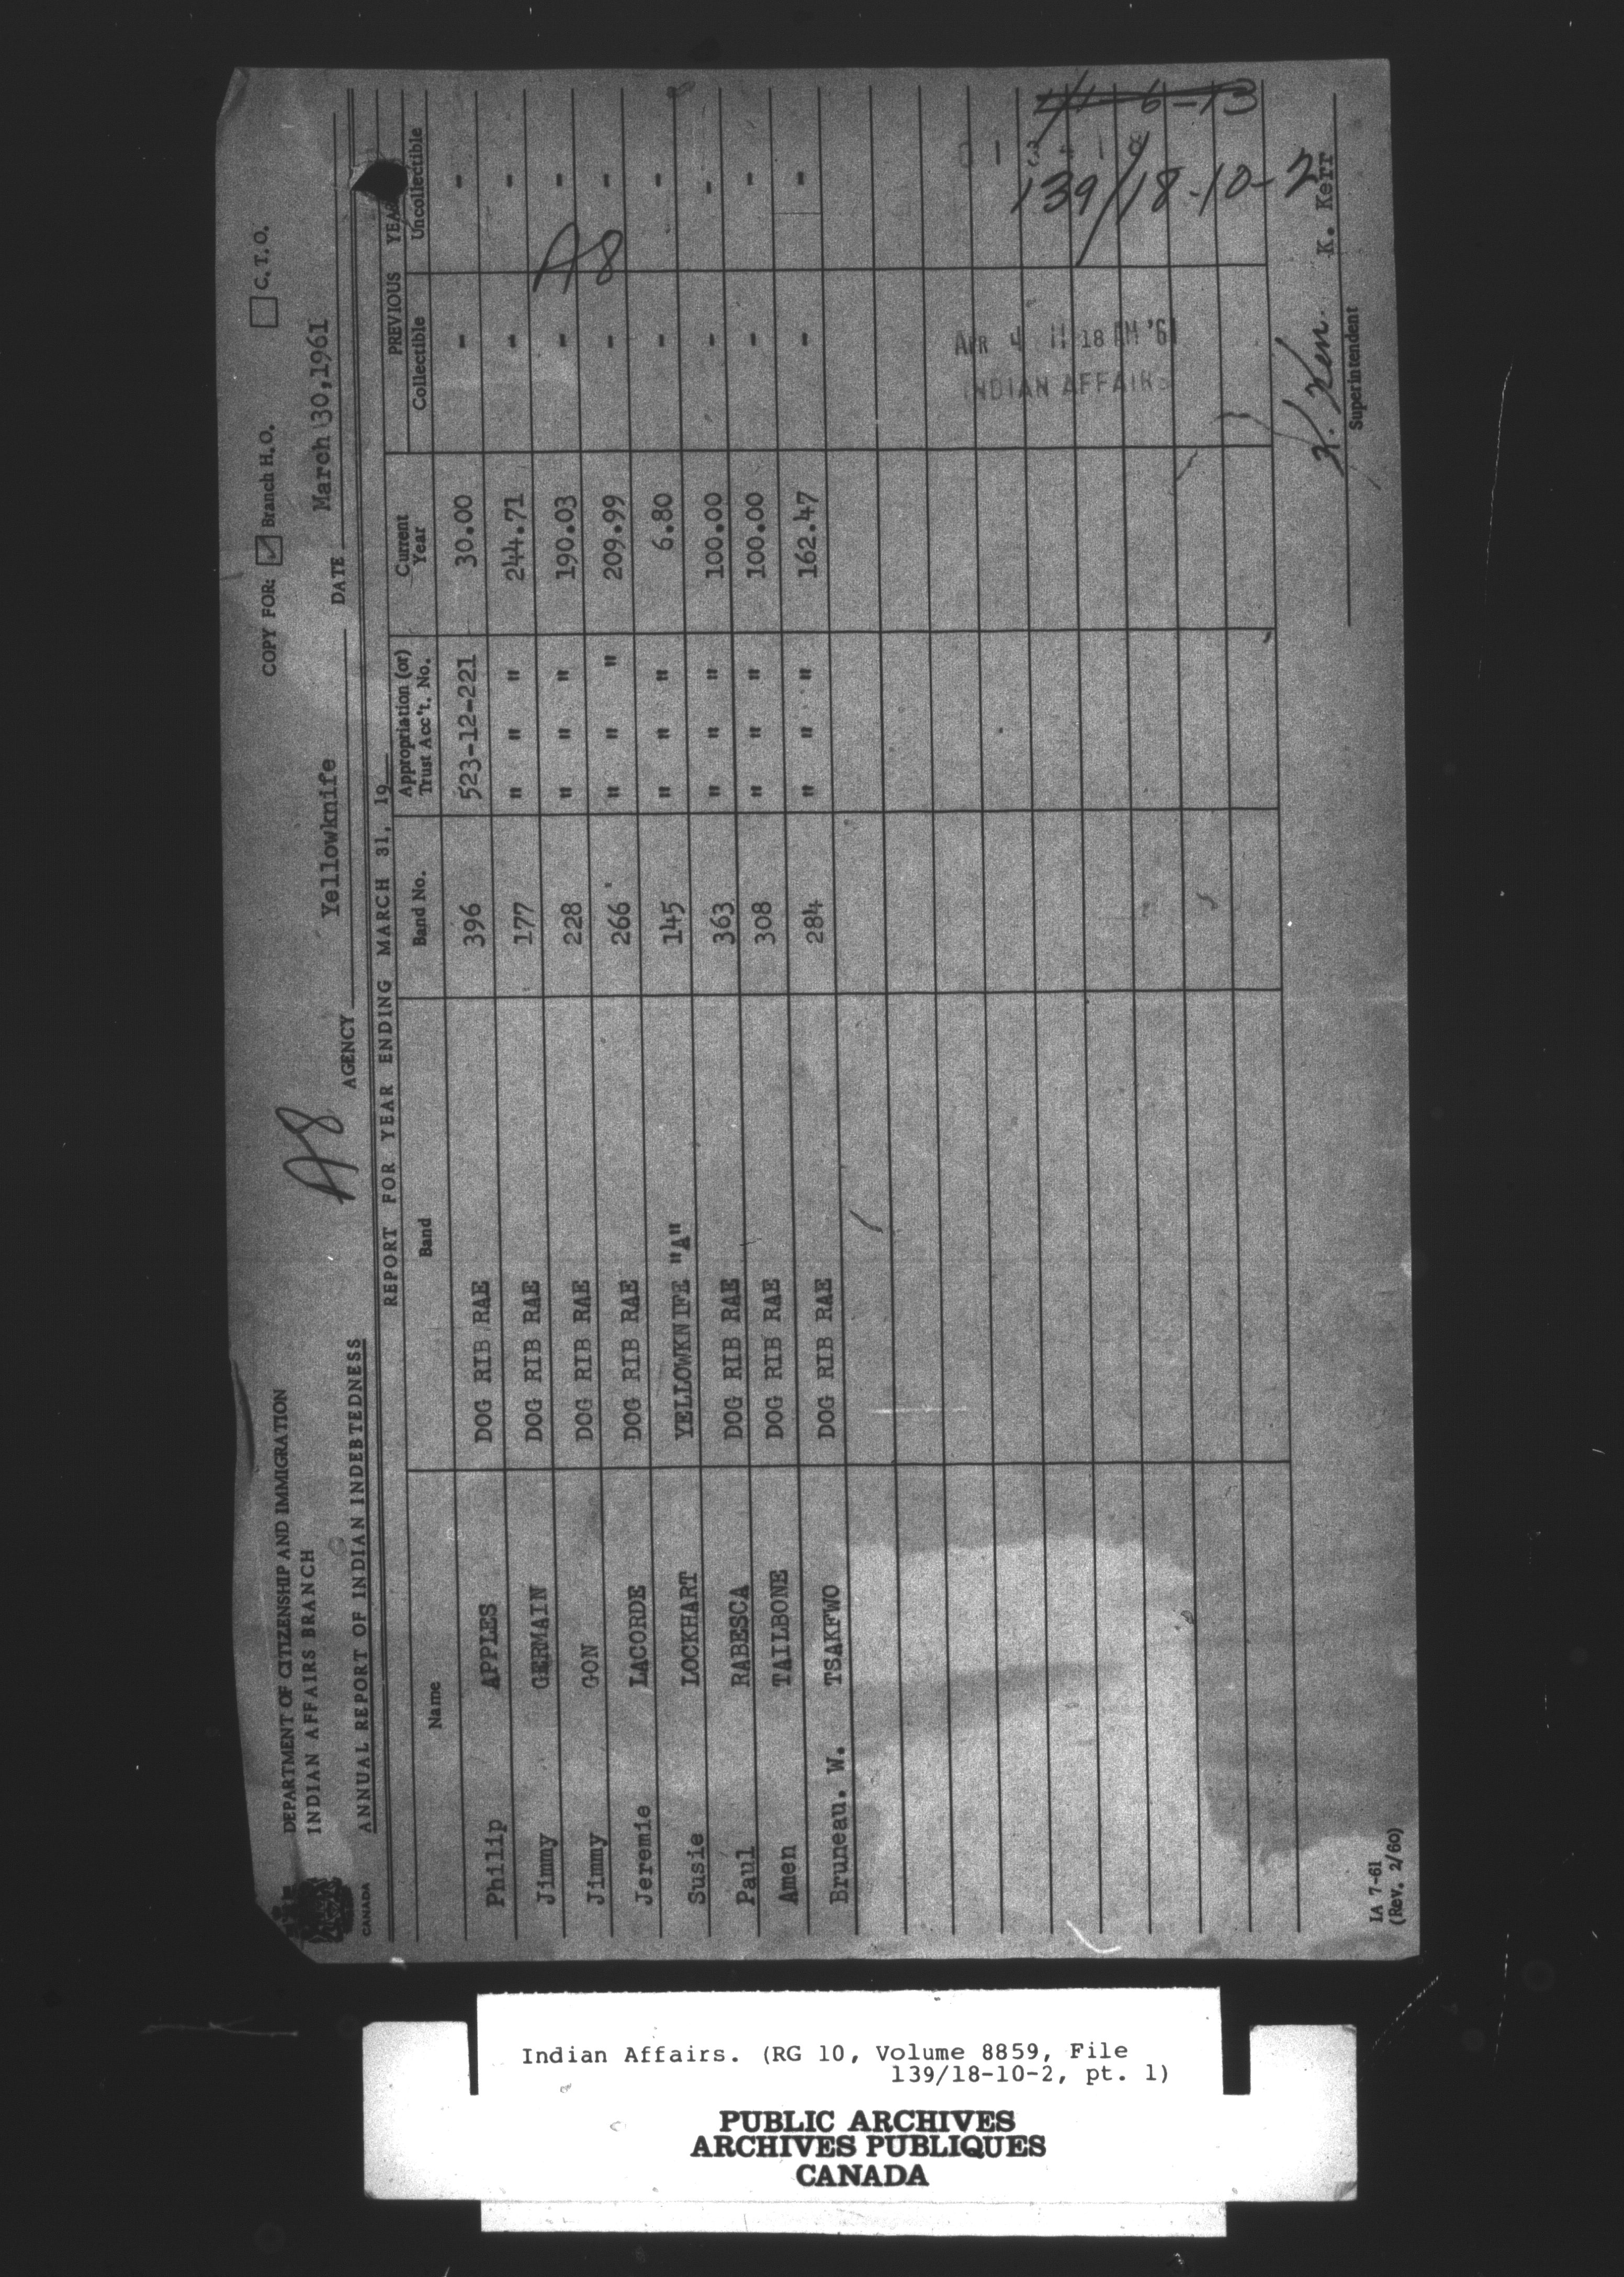 DEPARTMENT OF CITIZENSHIP AND IMMIGRATION
INDIAN AFFAIRS BRANCH
CANADA
ANNUAL REPORT OF INDIAN INDEBTEDNESS
A8
COPY FOR: ☑ Branch H.O. ☐ C.T.O.
AGENCY Yellowknife DATE March 30,1961
REPORT FOR YEAR ENDING MARCH 31, 19
Name Band Band No. Appropriation (or) Trust Acc't. No. Current Year PREVIOUS YEAR Collectible Uncollectible
Philip APPLES DOG RIB RAE 396 523-12-221 30.00 - -
Jimmy GERMAIN DOG RIB RAE 177 " " " 244.71 - -
Jimmy GON DOG RIB RAE 228 " " " 190.03 - -
A8
Jeremie LACORDE DOG RIB RAE 266 " " " 209.99 - -
Susie LOCKHART YELLOWKNIFE "A" 145 " " " 6.80 - -
Paul RABESCA DOG RIB RAE 363 " " " 100.00 - -
Amen TAILBONE DOG RIB RAE 308 " " " 100.00 - -
Bruneau. W. TSAKFWO DOG RIB RAE 284 " " " 162.47 - -
APR 4 11 18 AM '61
INDIAN AFFAIRS
6-13
139/18-10-2
K. Kerr
K. Kerr
Superintendent
IA 7-61
(Rev. 2/60)
Indian Affairs. (RG 10, Volume 8859, File
139/18-10-2, pt. 1)
PUBLIC ARCHIVES
ARCHIVES PUBLIQUES
CANADA